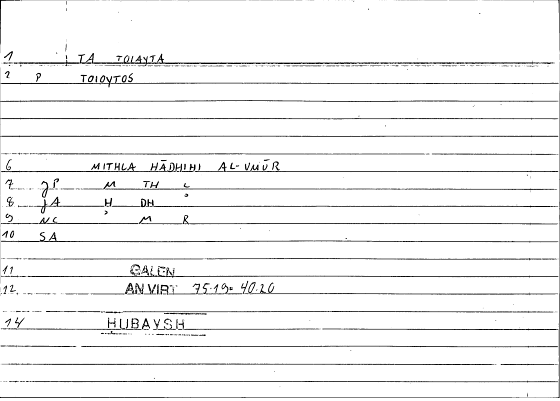 1 TA TOIAYTA
2 P TOIOYTOS
6 MITHLA HĀDHIHI AL-UMŪR
7 JP M TH L
8 JA H DH °
9 NC ' M R
10 SA
11 GALEN
12 AN VIRT 75.19= 40.20
14 HUBAYSH